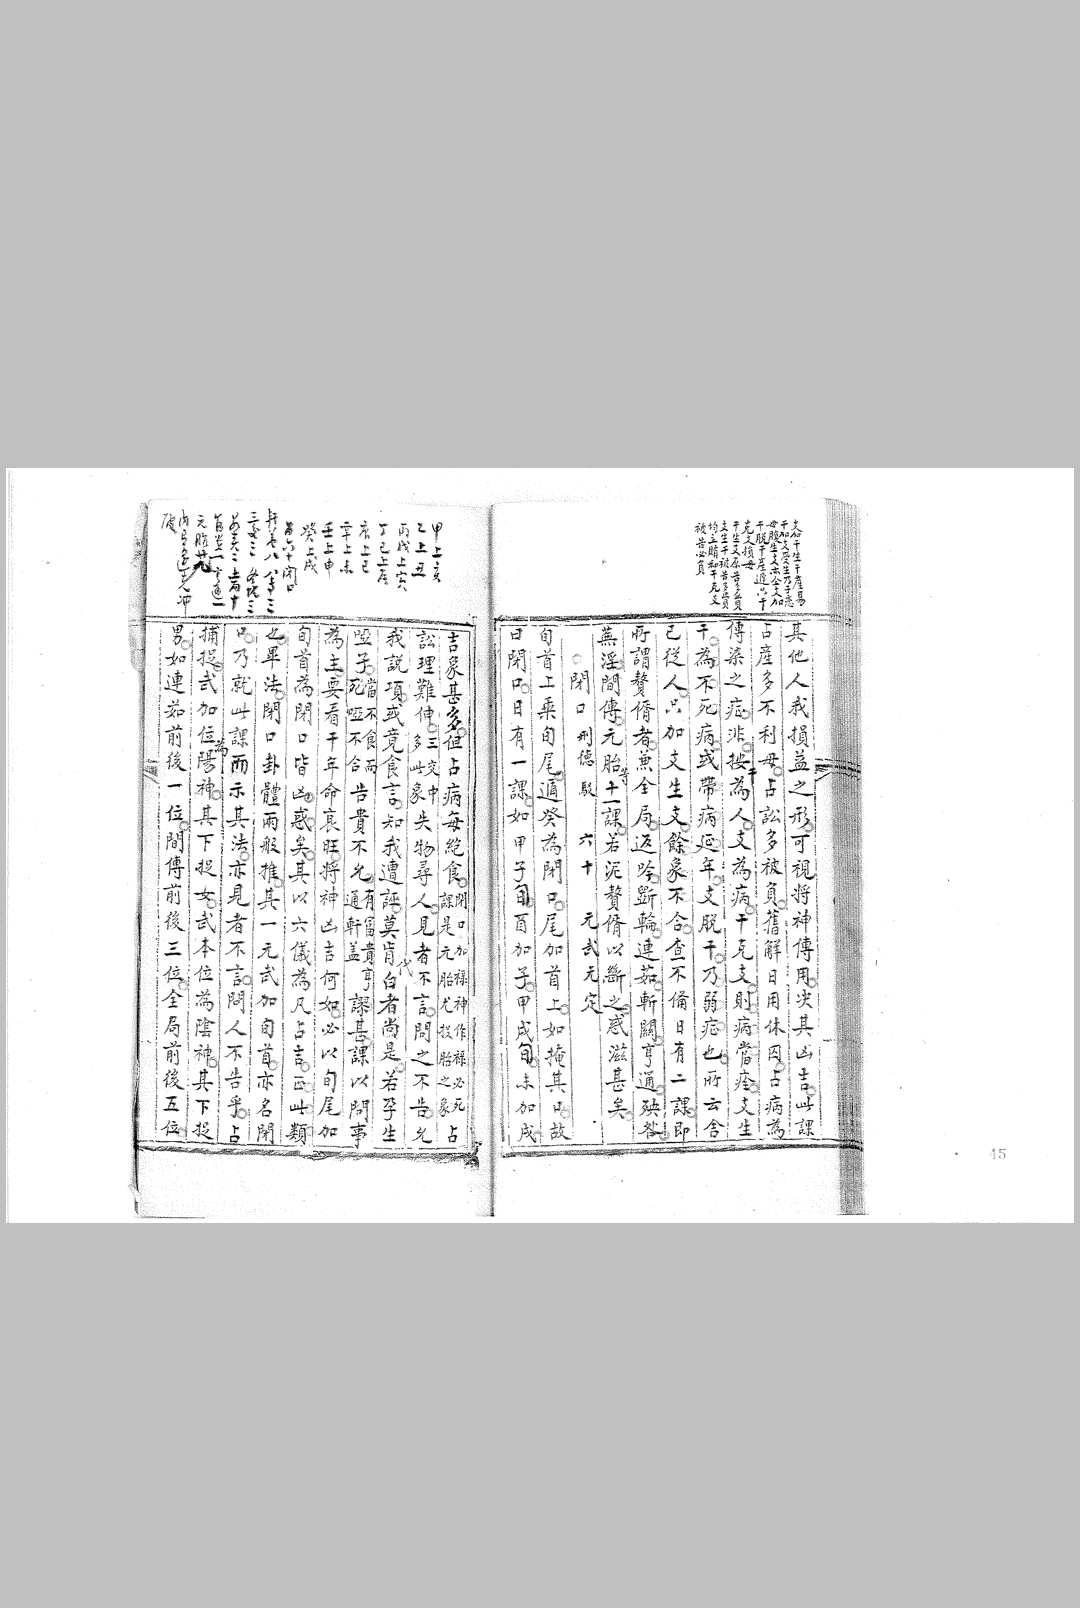 其他人我損益之形可視將神傳用決其凶吉此課
占產多不利母占訟多被負舊解日用休囚占病為
傳染之症非按干為人支為病干克支則病當痊支生
干為不死病或帶病延年支脫干乃弱症也所云舍
己從人只加支生支餘象不合查不備日有二課即
所謂贅婿者兼全局返吟斲輪連茹斬關亨通殃咎
蕪淫間傳元胎等十一課若泥贅婿以斷之惑滋甚矣
閉口 刑德 駁 六十 元武 元定
旬首上乘旬尾遁癸為閉口尾加首上如掩其口故
曰閉口日有一課如甲子旬酉加子甲戌旬未加戌
吉象甚多但占病每絕食閉口加祿神作祿必死課是元胎尤投胎之象占
訟理難伸三交中多此象失物尋人見者不言問之不告允
我說項或竟食言知我遭誣莫肯白者尚是若孕生
啞子當不食而死啞不合告貴不允有富貴亨通軒蓋謬甚課以問事
為主要看干年命衰旺將神凶吉何如必以旬尾加
旬首為閉口皆凶惑矣其以六儀為凡占言正此類
也畢法閉口卦體兩般推其一元武加旬首亦名閉
口乃就此課而示其法亦見者不言問人不告乎占
捕捉武加位陽神為其下捉女武本位為陰神其下捉
男如連茹前後一位間傳前後三位全局前後五位
甲上亥
乙上丑
丙戊上寅
丁己上辰
庚上巳
辛上未
壬上申
癸上戌
45